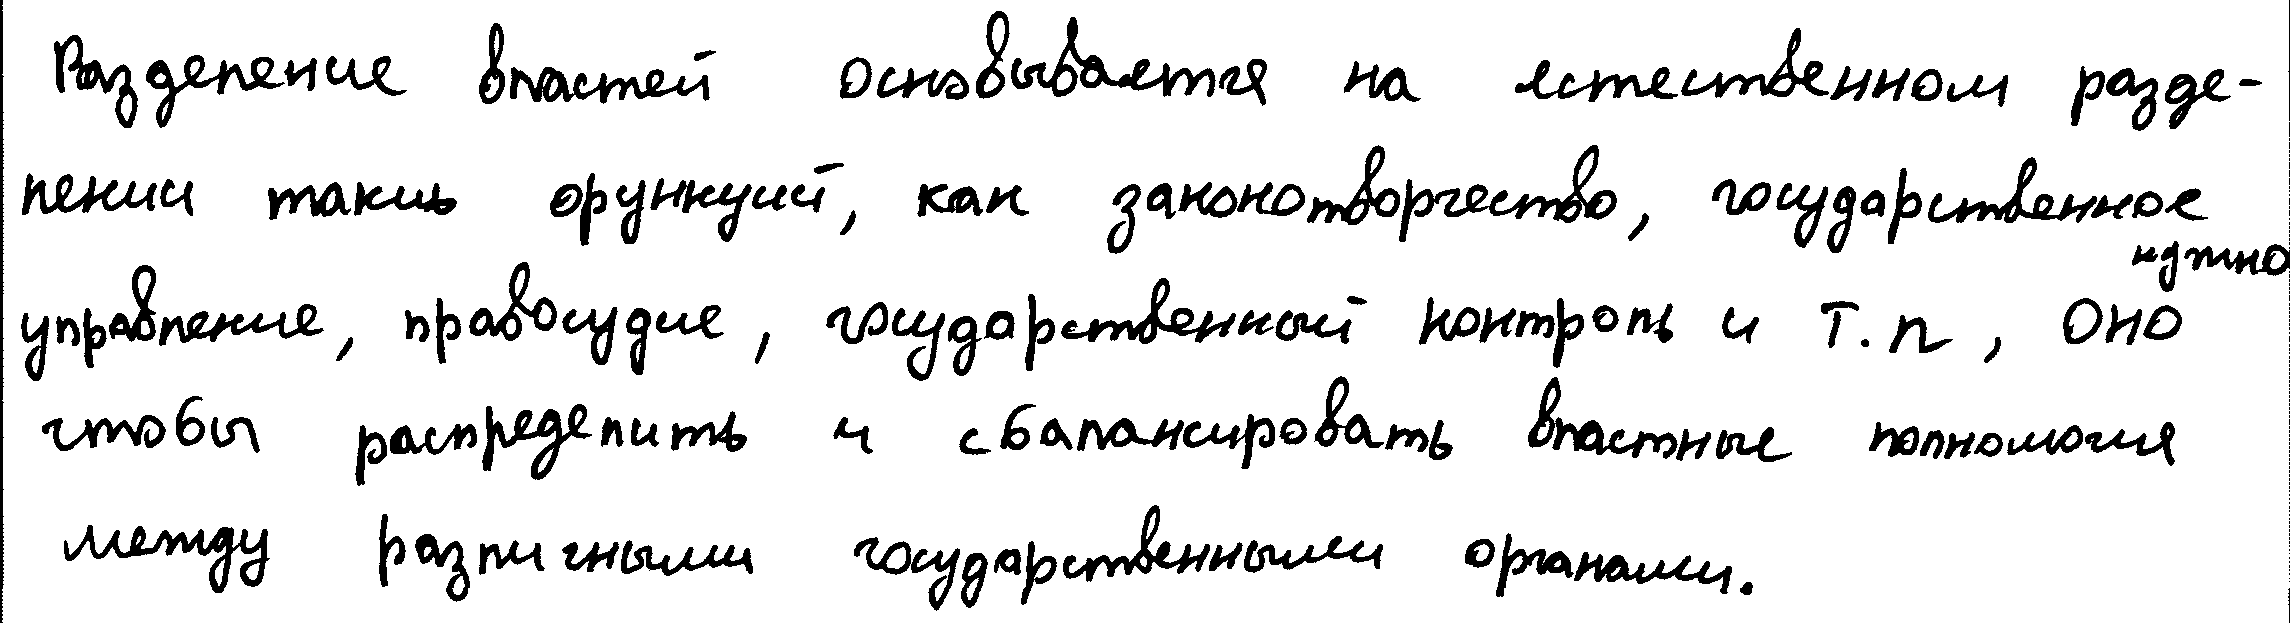 Разделение властей основывается на естественном разде-
лении таких функций, как законотворчество, государственное
управление, правосудие, государственный контроль и т.п, оно нужно
чтобы распределить и сбалансировать властные полномочия
между различными государственными органами.